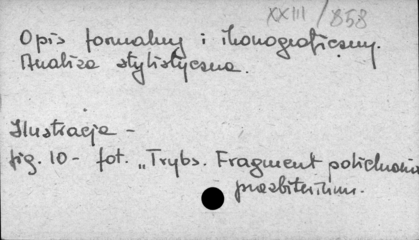 XXIII/858
Opis formalny i ikonograficzny.
Analiza stylistyczna.
Ilustracja -
fig. 10 - fot. „Trybs. Fragment polichromii
prezbiterium.